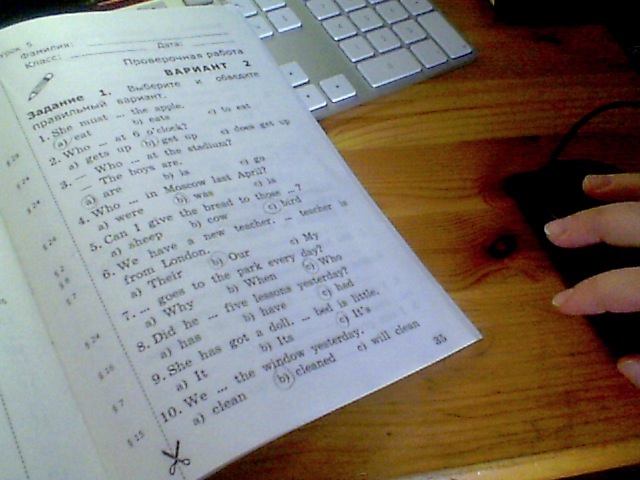 урок 5
Фамилия: Дата:
Класс:
Проверочная работа
ВАРИАНТ 2
Задание 1. Выберите и обведите
правильный вариант.
1. She must ... the apple.
a) eat b) eats c) to eat
2. Who ... at 6 o'clock?
a) gets up b) get up c) does get up
3. — Who ... at the stadium?
— The boys are.
a) are b) is c) go
4. Who ... in Moscow last April?
a) were b) was c) is
5. Can I give the bread to those ...?
a) sheep b) cow c) bird
6. We have a new teacher. ... teacher is
from London.
a) Their b) Our c) My
7. ... goes to the park every day?
a) Why b) When c) Who
8. Did he ... five lessons yesterday?
a) has b) have c) had
9. She has got a doll. ... bed is little.
a) It b) Its c) It's
10. We ... the window yesterday.
a) clean b) cleaned c) will clean
35